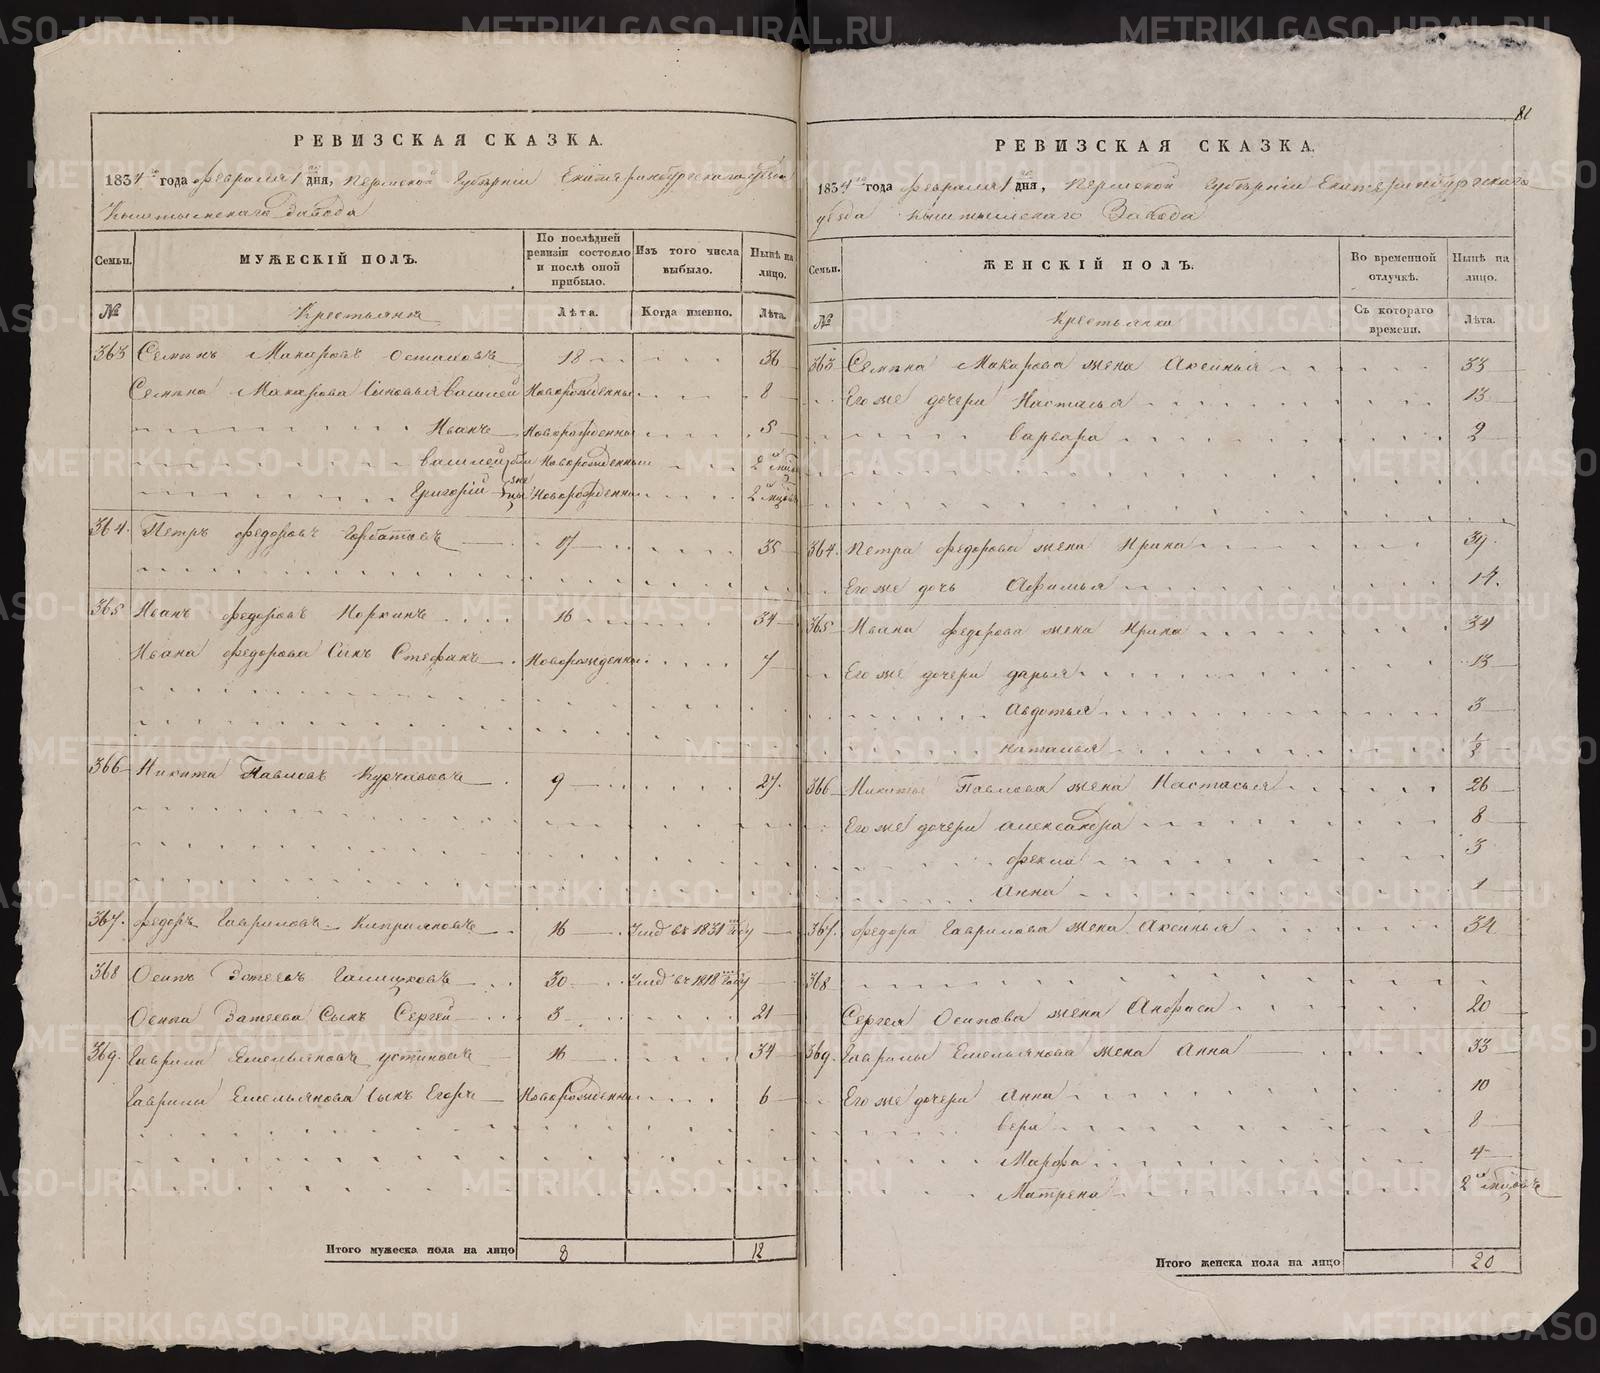 81
РЕВИЗСКАЯ СКАЗКА.
1834 го года февраля 1 го дня, Пермской Губерніи Екатеринбургскаго уезда
Кыштымскаго Завода
Семьи. МУЖЕСКІЙ ПОЛЪ. По послѣдней ревизіи состояло и послѣ оной прибыло. Изъ того числа выбыло. Нынѣ на лицо.
№ Крестьяна Лѣта. Когда именно. Лѣта.
363 Семенъ Макаровъ 18 36
Семена Макарова сыновья Василей Новорожденны 8
Иванъ Новорожденны 5
Василей Новорожденны 2
Григорій Новорожденны 2
364. Петръ Федоровъ Горбатовъ 17 35
365 Иванъ Федоровъ Норкинъ 16 34
Ивана Федорова Сынъ Стефанъ Новорожденны 7
366 Никита Павловъ 9 27.
367. Федоръ Гавриловъ Киприяновъ 16 Умеръ въ 1831 году
368 Осипъ Галицковъ 30 Умеръ въ 1818 году
Осипа Сынъ Сергей 3 21
369. Гаврила Емельяновъ Устиновъ 16 34
Гаврилы Емельянова Сынъ Егоръ Новорожденны 6
Итого мужеска пола на лицо 8 12
РЕВИЗСКАЯ СКАЗКА.
1834 го года февраля 1 го дня, Пермской Губерніи Екатеринбургскаго
уезда Кыштымскаго Завода
Семьи. ЖЕНСКІЙ ПОЛЪ. Во временной отлучкѣ. Нынѣ на лицо.
№ Крестьянки Съ котораго времени. Лѣта.
363 Семена Макарова жена Аксинья 33
Его же дочери Настасья 13
Варвара 2
364. Петра Федорова жена Ирина 39
Его же дочь Афимья 14.
365 Ивана Федорова жена Ирина 34
Его же дочери Дарья 13
Авдотья 3
Наталья 1/2
366 Никиты Павлова жена Настасья 26
Его же дочери Александра 8
Фекла 3
Анна 1
367. Федора Гаврилова жена Аксинья 34
368
Сергея Осипова жена Анфиса 20
369. Гаврилы Емельянова жена Анна 33
Его же дочери Анна 10
Вера 8
Марфа 4
Матрена 2
Итого женска пола на лицо 20
METRIKI.GASO-URAL.RU